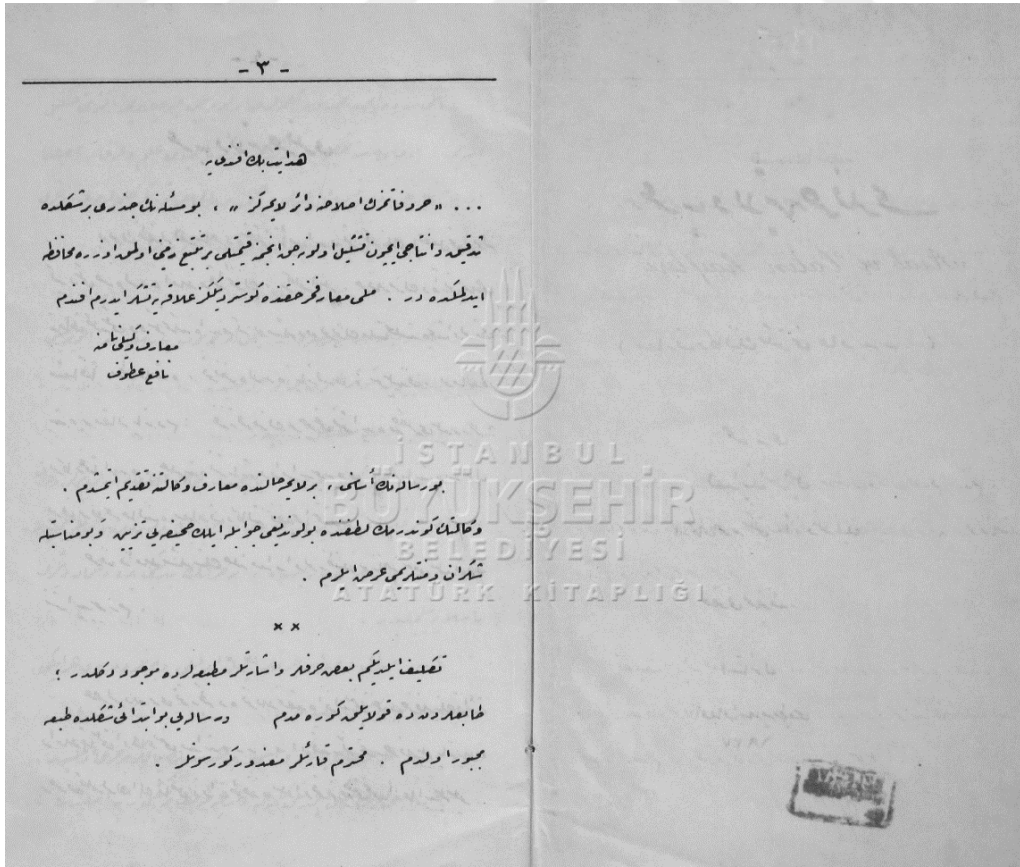 - ٣ -
هدایت بك افندی یه
... « حروفاتمزك اصلاحنه دائر لایحه كز » ، بو مسئله نك جذری بر شكلده
تدقیق و انتاجی ایچون تشكیل اولونه جق انجمنه قیمتلی بر تتبع زمینی اولمق اوزره محافظه
ایدلمكده در . ملی معارفمز حقنده كوستردیككز علاقه یه تشكر ایدرم افندم
معارف وكیلی نامنه
نافع عطوف
بو رساله نك أساسنی ، بر لایحه حالنده معارف وكالتنه تقدیم ایتمشدم .
وكالتك كوندرمك لطفنده بولوندیغی جوابله ایلك صحیفه یی تزیین و بو مناسبتله
شكران و منتلریمی عرض ایلرم .
× ×
تكلیف ایلدیكم بعض حرفلر و اشارتلر مطبعه لرده موجود دكلدر ؛
طابعلردن ده قولایلق كوره مدم و رساله یی بو ابتدائی شكلده طبعه
مجبور اولدم . محترم قارئلر معذور كورسونلر .
İSTANBUL
BÜYÜKŞEHİR
BELEDİYESİ
ATATÜRK KİTAPLIĞI